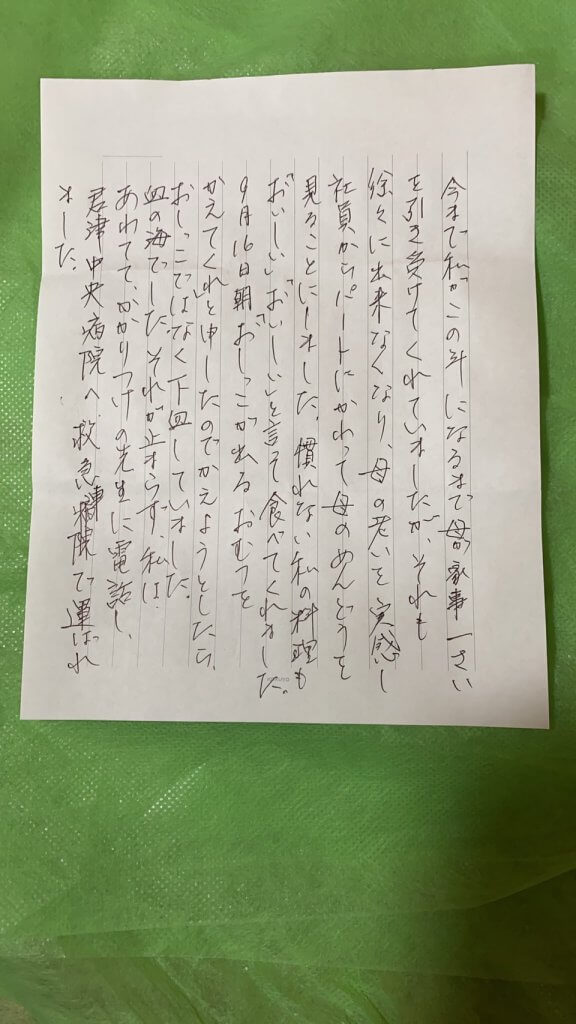 今まで私がこの年になるまで母が家事一さい
を引き受けてくれていましたが、それも
徐々に出来なくなり、母の老いを実感し
社員からパートにかわって母のめんどうを
見ることにしました。慣れない私の料理も
「おいしい」「おいしい」と言って食べてくれました。
9月16日朝「おしっこが出るおむつを
かえてくれ」と申したのでかえようとしたら、
おしっこではなく下血していました。
血の海でした。それが止まらず、私は
あわてて、かかりつけの先生に電話し、
君津中央病院へ救急車で運ばれ
ました。
KOKUYO